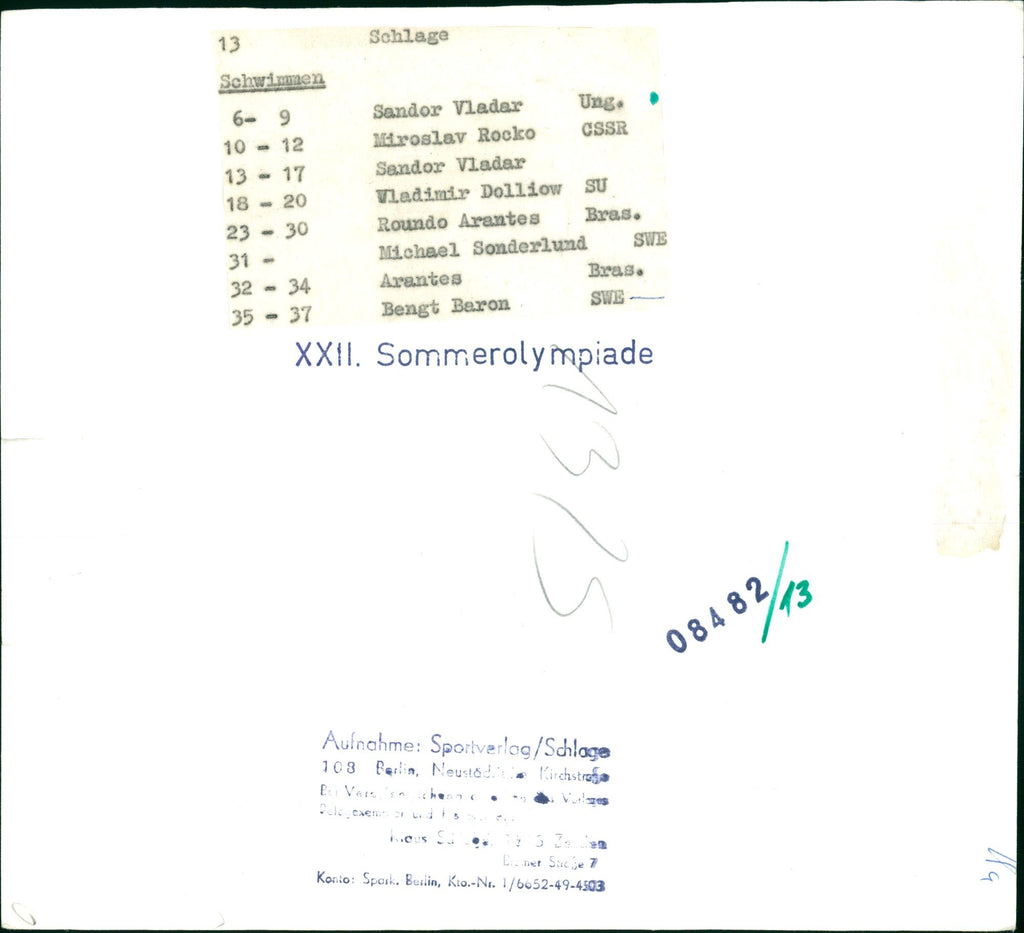 13 Schlage
Schwimmen
6- 9 Sandor Vladar Ung.
10 - 12 Miroslav Rocko CSSR
13 - 17 Sandor Vladar
18 - 20 Vladimir Dolliow SU
23 - 30 Roundo Arantes Bras.
31 - Michael Sonderlund SWE
32 - 34 Arantes Bras.
35 - 37 Bengt Baron SWE
XXII. Sommerolympiade
13/25
08482/13
Aufnahme: Sportverlag/Schlage
108 Berlin, Kirchstraße
Verlages
Klaus
7
Konto: Spark. Berlin, Kto.-Nr. 1/6652-49-4503